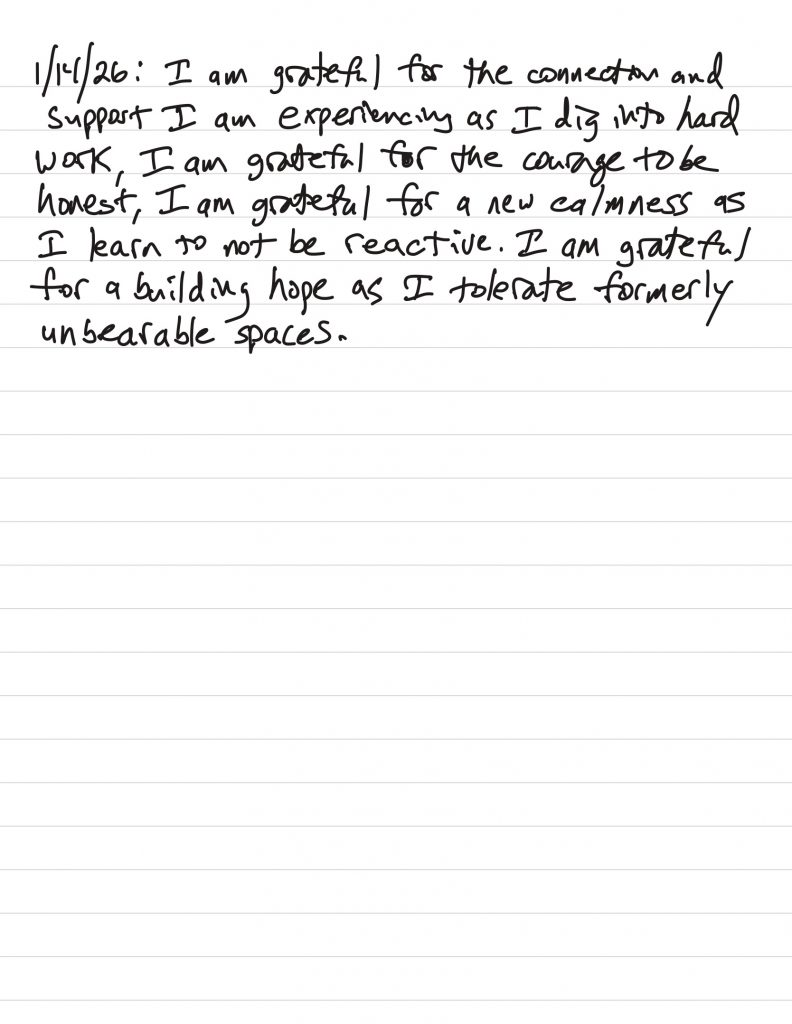 1/14/26: I am grateful for the connection and
support I am experiencing as I dig into hard
work, I am grateful for the courage to be
honest, I am grateful for a new calmness as
I learn to not be reactive. I am grateful
for a building hope as I tolerate formerly
unbearable spaces.